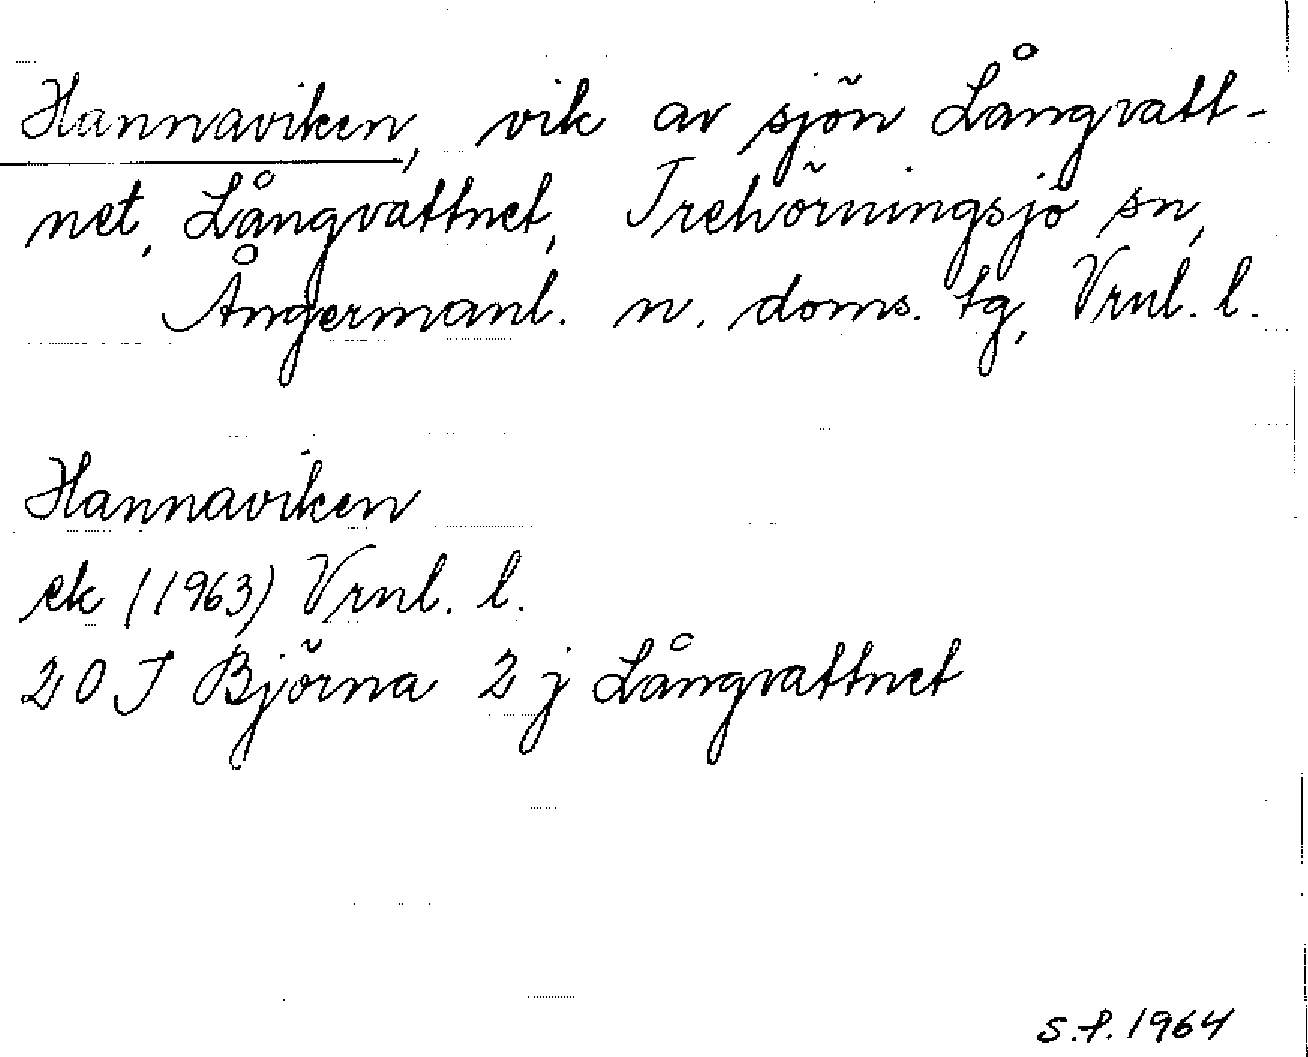 Hannaviken, vik av sjön Långvatt-
net, Långvattnet, Trehörningsjö sn,
Ångermanl. n. doms. tg, Vrnl. l.
Hannaviken
ek (1963) Vrnl. l.
20 J Björna 2 j Långvattnet
S.f. 1964